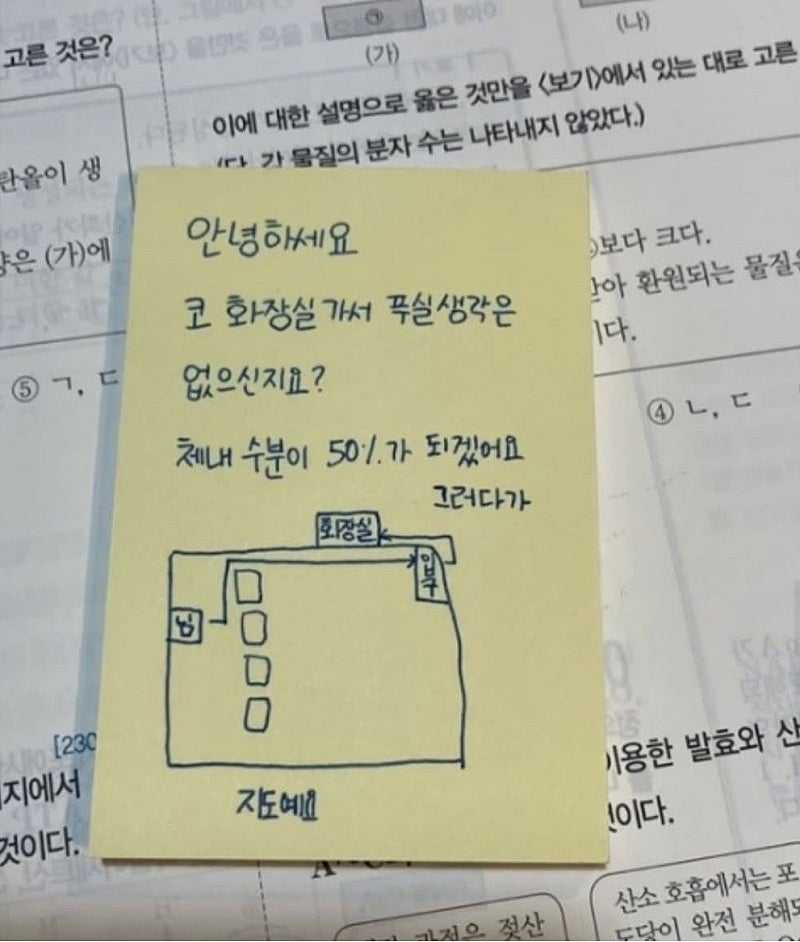 고른 것은?
(가)
(나)
이에 대한 설명으로 옳은 것만을 <보기>에서 있는 대로 고른
(단, 각 물질의 분자 수는 나타내지 않았다.)
탄올이 생
은 (가)에
보다 크다.
환원되는 물질은
이다.
⑤ ㄱ, ㄷ
④ ㄴ, ㄷ
안녕하세요
코 화장실가서 푸실생각은
없으신지요?
체내 수분이 50%가 되겠어요
그러다가
화장실
입구
님
지도예요
[230
지에서
것이다.
이용한 발효와 산
것이다.
과정은 젖산
산소 호흡에서는 포
도당이 완전 분해되